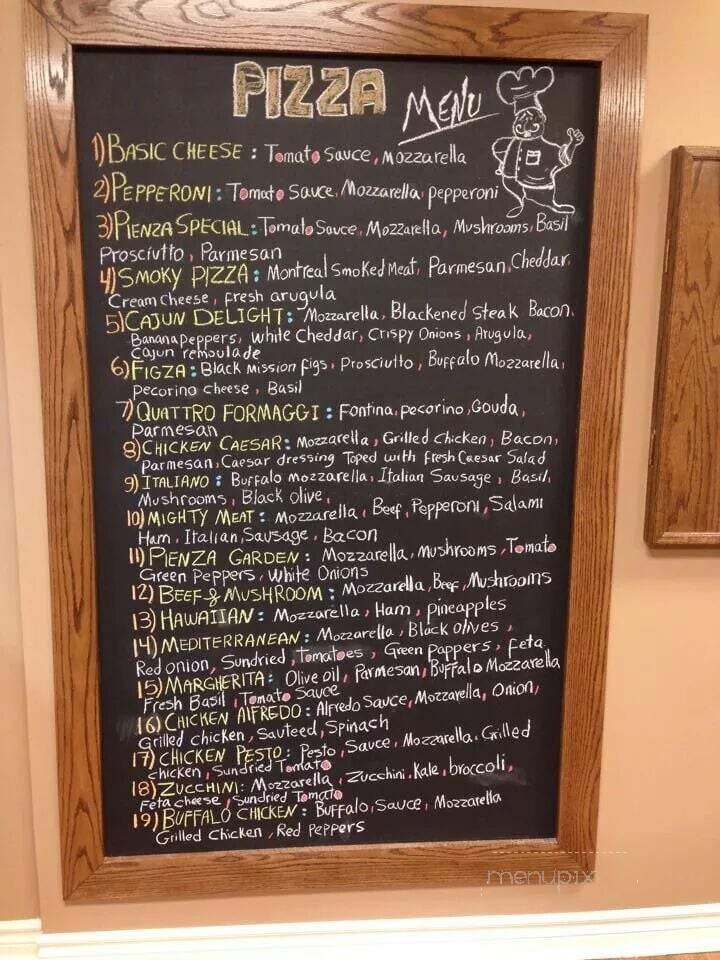 PIZZA MENU
1) BASIC CHEESE : Tomato Sauce, Mozzarella
2) PEPPERONI : Tomato Sauce, Mozzarella, pepperoni
3) PIENZA SPECIAL : Tomato Sauce, Mozzarella, Mushrooms, Basil
Prosciutto, Parmesan
4) SMOKY PIZZA : Montreal Smoked Meat, Parmesan, Cheddar,
Cream Cheese, fresh arugula
5) CAJUN DELIGHT : Mozzarella, Blackened Steak Bacon,
Banana peppers, white Cheddar, Crispy Onions, Arugula,
Cajun remoulade
6) FIGZA : Black Mission figs, Prosciutto, Buffalo Mozzarella,
pecorino cheese, Basil
7) QUATTRO FORMAGGI : Fontina, pecorino, Gouda,
Parmesan
8) CHICKEN CAESAR : Mozzarella, Grilled Chicken, Bacon,
Parmesan, Caesar dressing Toped with fresh Caesar Salad
9) ITALIANO : Buffalo mozzarella, Italian Sausage, Basil,
Mushrooms, Black olive,
10) MIGHTY MEAT : Mozzarella, Beef, Pepperoni, Salami
Ham, Italian, Sausage, Bacon
11) PIENZA GARDEN : Mozzarella, Mushrooms, Tomato
Green Peppers, White Onions
12) BEEF & MUSHROOM : Mozzarella, Beef, Mushrooms
13) HAWAIIAN : Mozzarella, Ham, pineapples
14) MEDITERRANEAN : Mozzarella, Black olives,
Red onion, Sundried, Tomatoes, Green pappers, feta
15) MARGHERITA : Olive oil, Parmesan, Buffalo Mozzarella
Fresh Basil, Tomato Sauce
16) CHICKEN AlFREDO : Alfredo Sauce, Mozzarella, Onion,
Grilled chicken, Sauteed, Spinach
17) CHICKEN PESTO : Pesto, Sauce, Mozzarella, Grilled
chicken, Sundried Tomato
18) ZUCCHINI : Mozzarella, Zucchini, Kale, broccoli,
Feta cheese, Sundried Tomato
19) BUFFALO CHICKEN : Buffalo, Sauce, Mozzarella
Grilled Chicken, Red Peppers
menupix